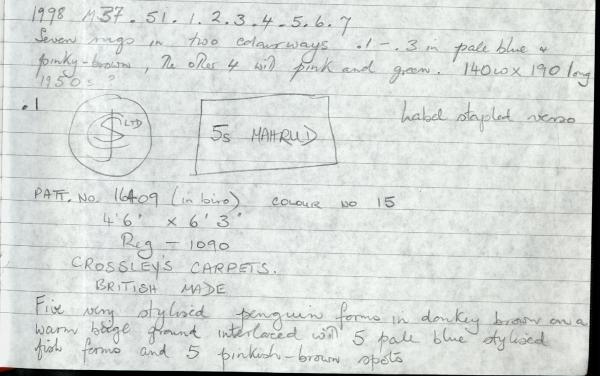 1998 M37.51.1.2.3.4.5.6.7
Seven rugs in two colourways .1-.3 in pale blue &
pinky-brown, The other 4 with pink and green. 140w x 190 long
1950s?
.1
LTD
5s MAHRUD
Label stapled verso
PATT. NO. 16409 (in biro) COLOUR NO 15
4'6" x 6'3"
Reg - 1090
CROSSLEY'S CARPETS.
BRITISH MADE
Five very stylised penguin forms in donkey brown on a
warm beige ground interlaced with 5 pale blue stylised
fish forms and 5 pinkish-brown spots